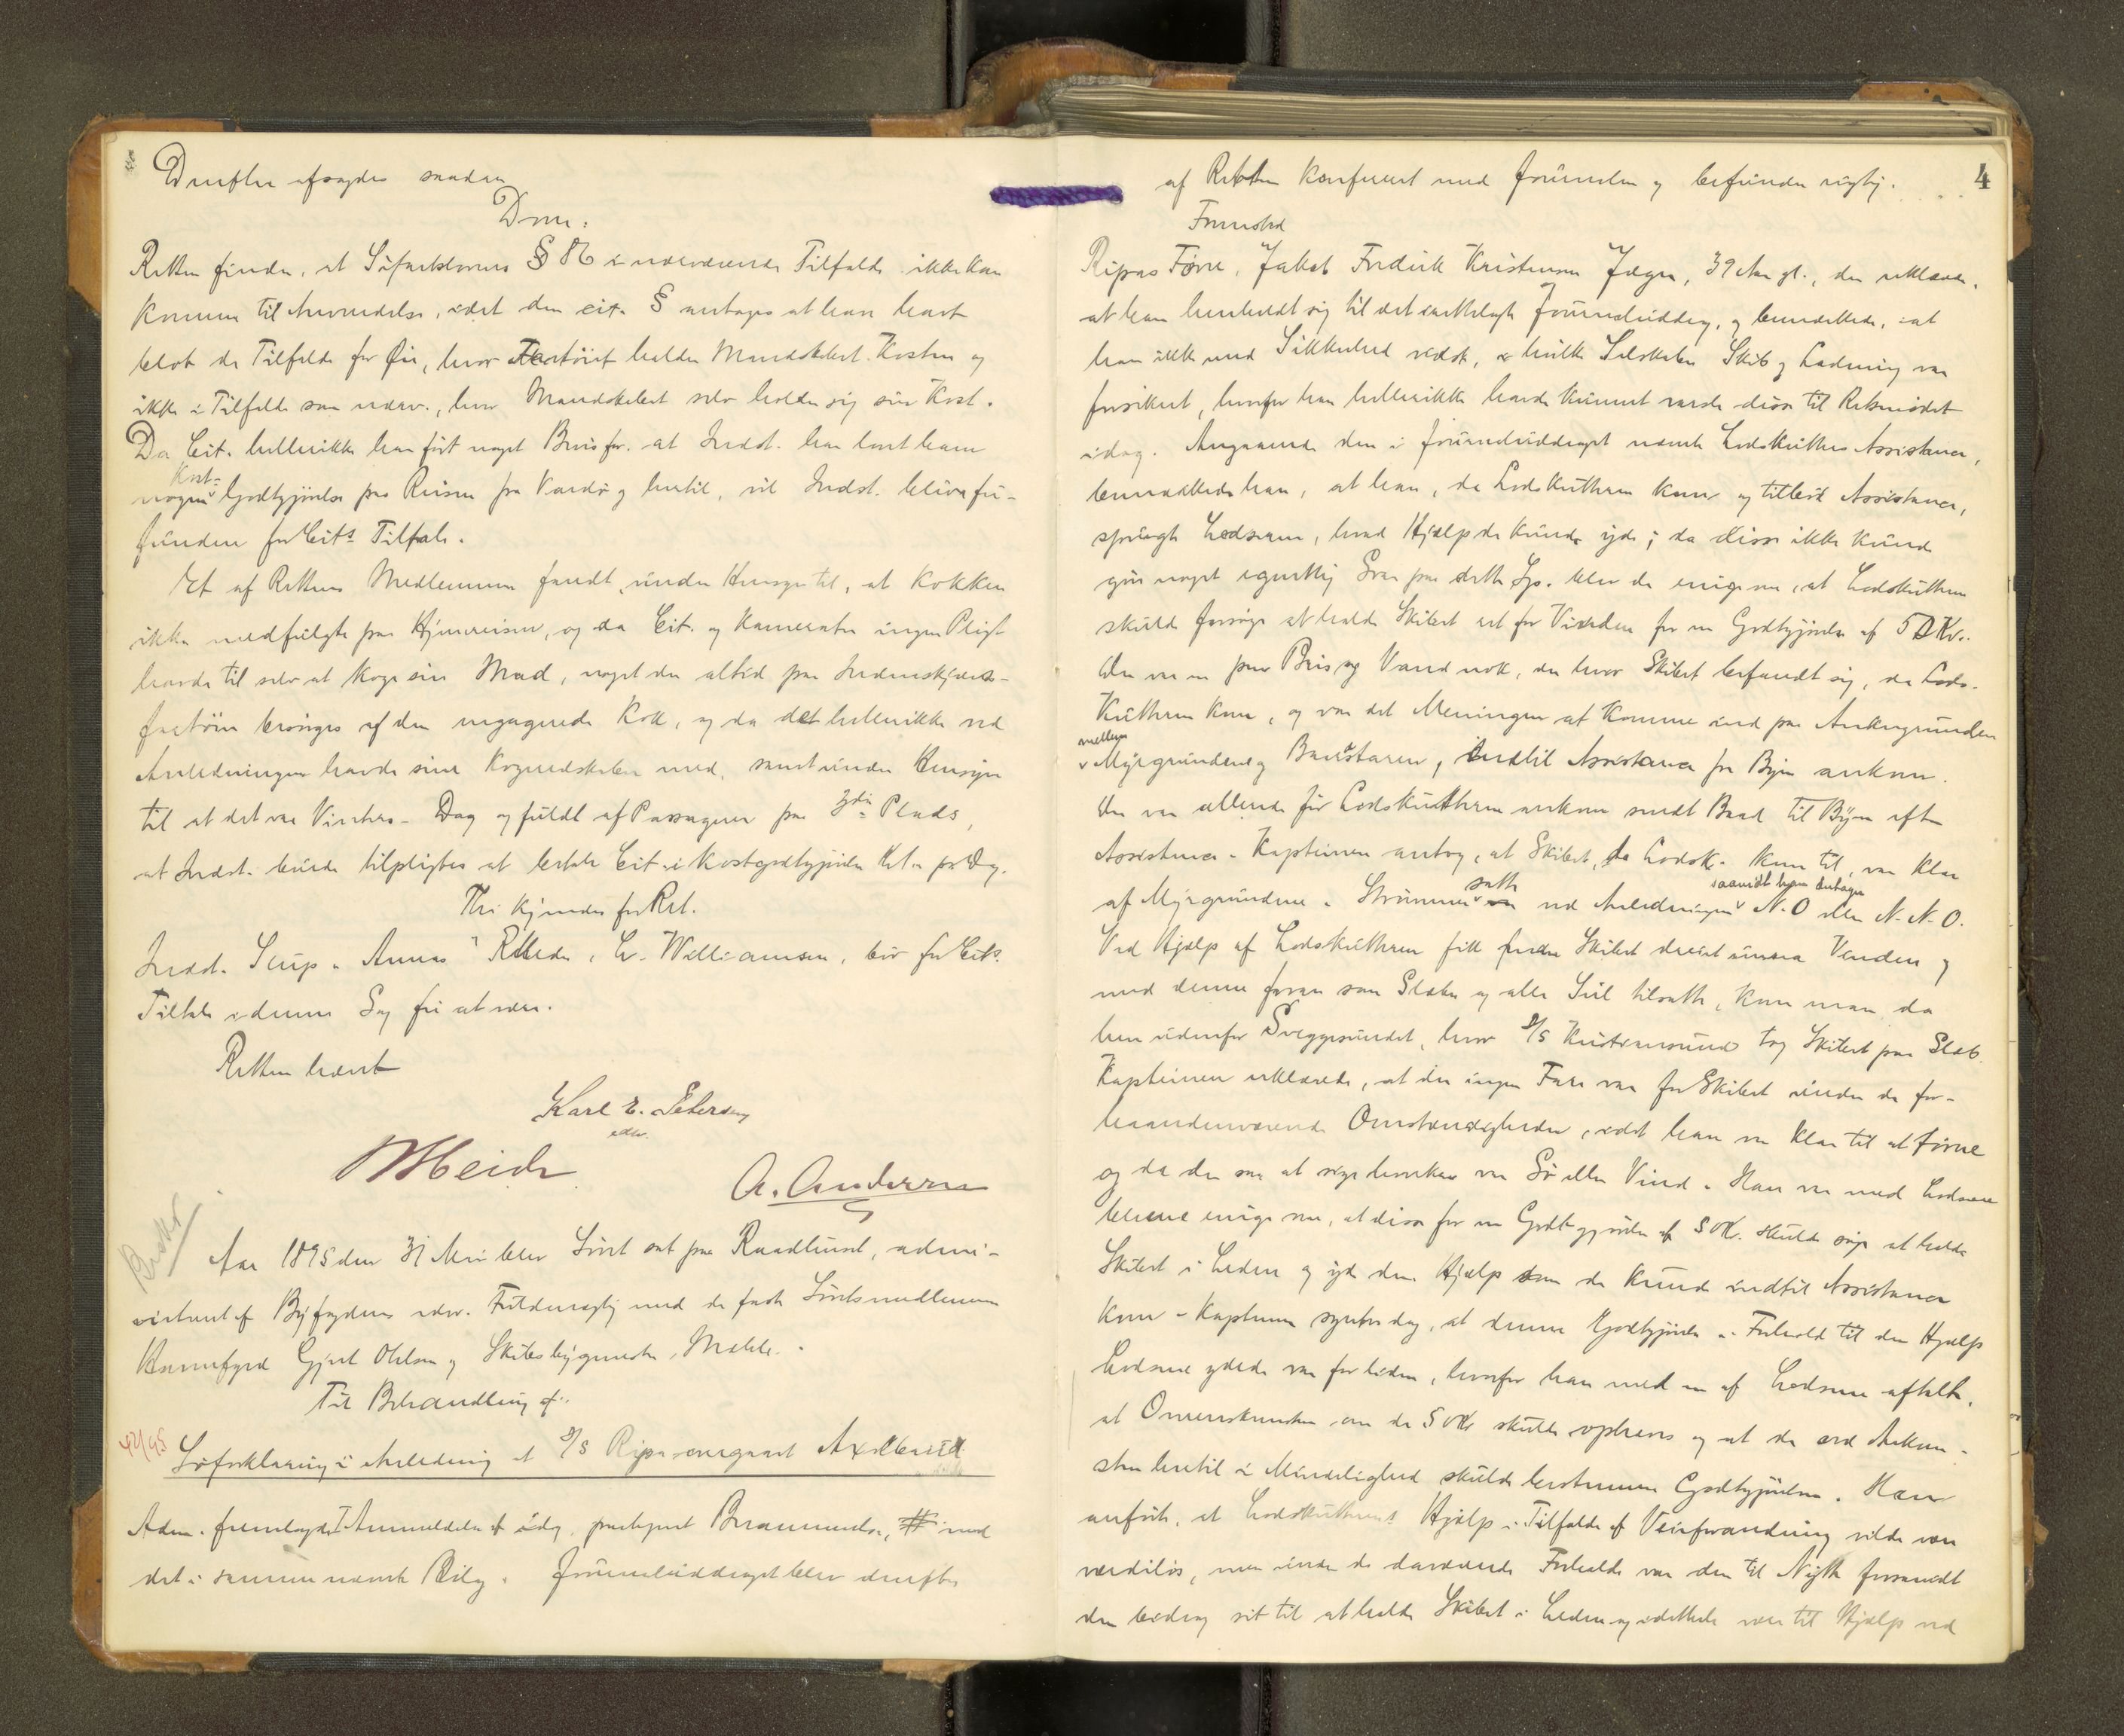 Derefter afsagdes saadan
Dom:
Retten finder, at Söfartslovens § 86 i nærværende Tilfælde ikke kan
komme til Anvendelse, idet den cit. § antages at have havt
blot de Tilfælde for Öie, hvor Fartöiet holder Mandskabet Kosten og
ikke i Tilfælde som nærv., hvor Mandskabet selv holder sig sin Kost.
Da Cit. hellerikke har fört noget Bevis for, at Indst. har lovet ham
nogen Kost-Godtgjörelse paa Reisen fra Vardö og hertil, vil Indst. blive fri-
funden for Cits Tiltale.
Et af Rettens Medlemmer fandt, under Hensyn til, at Kokken
ikke medfulgte paa Hjemreisen, og da Cit. og Kamerater ingen Pligt
havde til selv at koge sin Mad, noget der altid paa Indenskjærs-
fartöier besörges af den engagerede Kok, og da det hellerikke ved
Anledningen havde sine Kogeredskaber med, samt under Hensyn
til at det var Vinters-Dag og fuldt af Passagerer paa 3die Plads,
at Indst. burde tilpligtes at betale Cit. i Kostgodtgjörelse Kr. 1 pr. Dag.
Thi kjendes for Ret:
Indst. Slup „Annas" Rheder, Chr. Williamsen, bör for Cits.
Tiltale i denne Sag fri at være.
Retten hævet
Karl E. Petersen
edsv.
M Heide
A. Andersen
Aar 1895 den 31 Mai blev Söret sat paa Raadhuset, admi-
nistreret af Byfogdens edsv. Fuldmægtig med de faste Söretsmedlemmer
Havnefoged Gjert Ohlsen og Skibsbygmester Møhle.
Til Behandling af:
42/95 Söforklaring i Anledning af S/S Ripa overgaaet Axelhavari
Adm. fremlagde Anmeldelse af idag paategnet Berammelse, med
det i samme nævnte Bilag. Journaluddraget blev derefter
4
af Retten konfereret med Journalen og befunden rigtig.
Fremstod
Ripas Förer, Jakob Fredrik Kristensen Jæger, 39 Aar gl., der erklærede,
at han henholdt sig til det fremlagte Journaluddrag, og bemærkede, at
han ikke med Sikkerhed vidste, i hvilke Selskaber Skib og Ladning var
forsikret, hvorfor han hellerikke havde kunnet varsle disse til Retsmödet
idag. Angaaende den i Journaluddraget nævnte Lodskutters Assistance,
bemærkede han, at han, da Lodskutteren kom og tilböd Assistance,
spurgte Lodserne, hvad Hjælp de kunde yde; da disse ikke kunde
give noget egentlig Svar paa dette Sp. blev de enige om, at Lodskutteren
skulde forsöge at holde Skibet op for Vinden for en Godtgjörelse af 50 Kr.
Der var en pen Bris og Vand nok, der hvor Skibet befandt sig, da Lods-
kutteren kom, og var det Meningen at komme ind paa Ankergrunden
mellem Myrgrundene og Bautstaren, indtil Assistance fra Byen ankom.
Der var allerede för Lodskutteren ankom sendt Baad til Byen efter
Assistance. Kapteinen antog, at Skibet, da Lodsk. kom til, var klar
af Myrgrundene. Strömmen satte ved Anledningen saavidt han antager N.O eller N.N.O.
Ved Hjælp af Lodskutteren fik man Skibet dreiet under Vinden og
med denne foran som Slæber og alle Seil tilsatte, kom man da
hen udenfor Sveggesundet, hvor S/S Kristiansund tog Skibet paa Slæb.
Kapteinen erklærede, at der ingen Fare var for Skibet under de for-
haandenværende Omstændigheder, idet han var klar til at förne
og da der saa at sige hverken var Sö eller Vind. Han var med Lodserne
blevne enige om, at disse for en Godtgjörelse af 50 Kr. skulde söge at holde
Skibet i Leden og yde den Hjælp som de kunde indtil Assistance
kom. Kapteinen syntes dog, at denne Godtgjörelse i Forhold til den Hjælp
Lodserne ydede var for liden, hvorfor han med en af Lodserne aftalte,
at Overenskomsten om de 50 Kr skulde ophæves og at de ved Ankom-
sten hertil i Mindelighed skulde bestemme Godtgjörelsen. Han
anförte, at Lodskutterens Hjælp i Tilfælde af Veirforandring vilde være
værdilös, men under de daværende Forholde var den til Nytte forsaavidt
den bidrog sit til at holde Skibet i Leden og idethele være til Hjælp ved